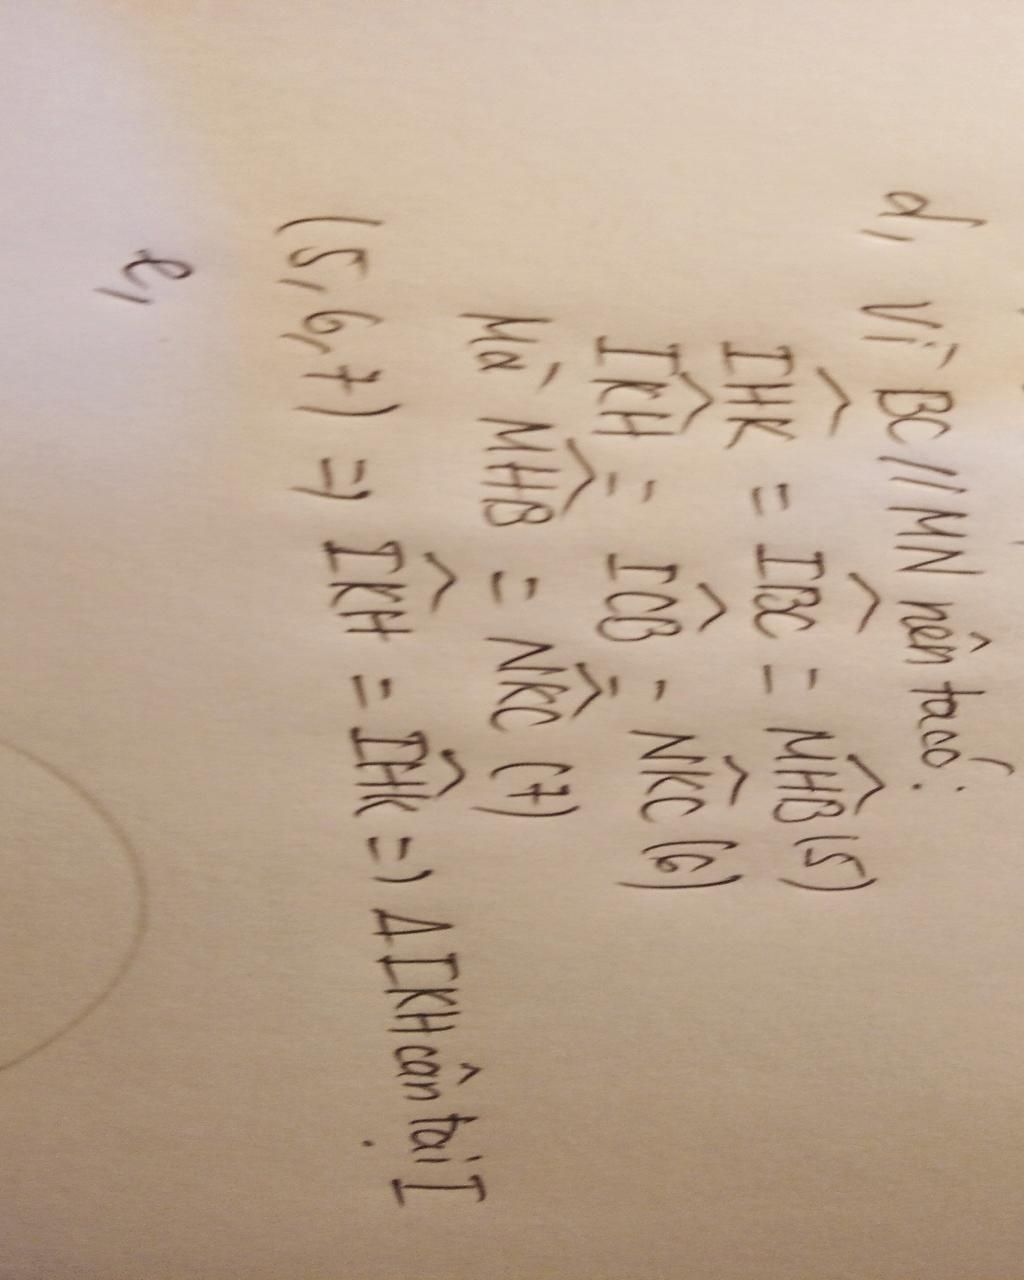 d, Vì BC // MN nên ta có:
IHK̂ = IBĈ = MHB̂ (5)
IKĤ = ICB̂ = NKĈ (6)
Mà MHB̂ = NKĈ (7)
(5, 6, 7) => IKĤ = IHK̂ => Δ IKH cân tại I
e,